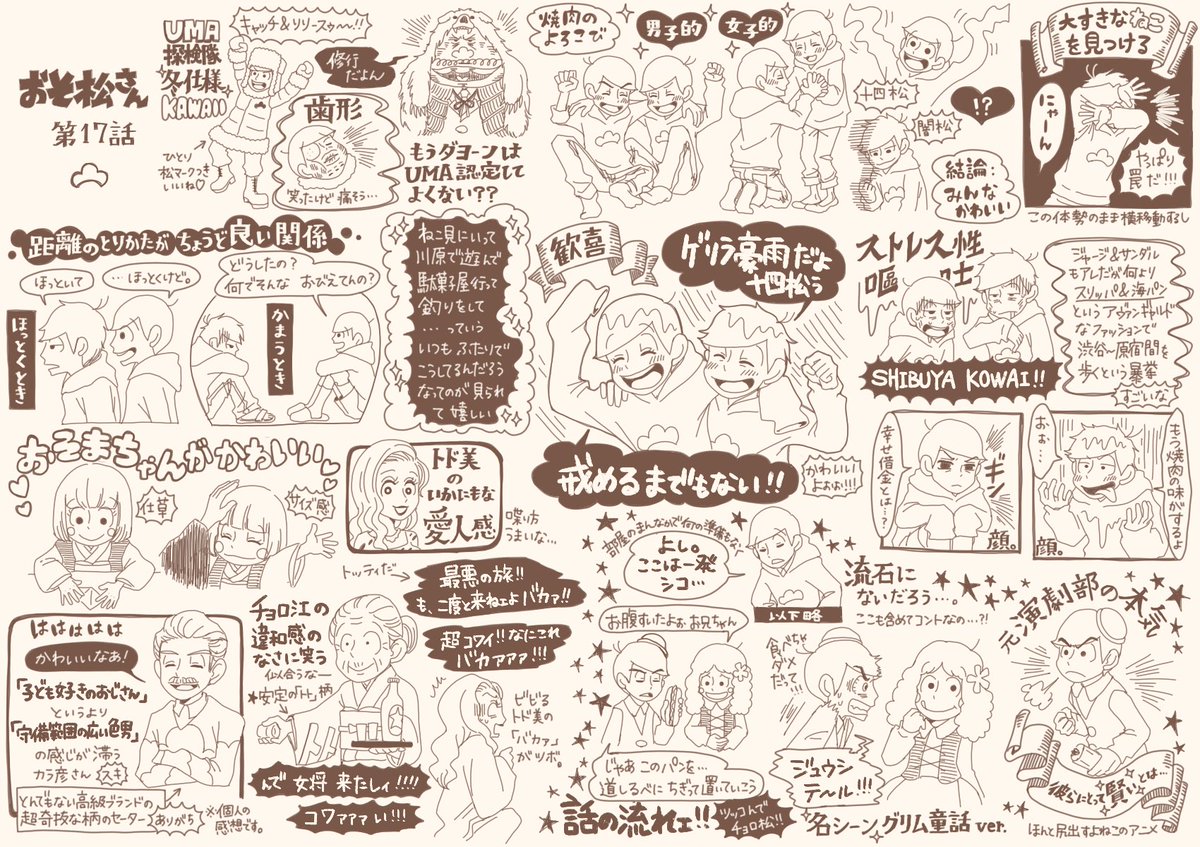 おそ松さん
第17話
UMA
探検隊
冬仕様
KAWAII
キャッチ&リリースゥ〜〜!!
ひとり
松マークつき
いいね♡
修行
だよん
歯形
笑ったけど痛そう…
もうダヨーンは
UMA認定して
よくない??
焼肉の
よろこび
男子的
女子的
十四松
闇松
!?
結論:
みんな
かわいい
大すきなねこ
を見つける
にゃーん
やっぱり
罠だ!!!
この体勢のまま横移動むし
距離のとりかたがちょうど良い関係
ほっといて
…ほっとくけど。
ほっとくとき
どうしたの?
何でそんな おびえてんの?
かまうとき
ねこ見にいって
川原で遊んで
駄菓子屋行って
釣りをして
…っていう
いつもふたりで
こうしてるんだろう
なってのが見られ
て嬉しい
歓喜
ゲリラ豪雨だよ
十四松ぅ
戒めるまでもない!!
かわいい!
よぉぉ!!!
ストレス性
嘔吐
SHIBUYA KOWAI!!
ジャージ&サンダル
もアレだが何より
スリッパ&海パン
というアヴァンギャルド
なファッションで
渋谷〜原宿間を
歩くという暴挙
すごいな
幸せ借金とは…?
ギン
顔。
もう焼肉の味がするよ
おぉ…
顔。
おそまちゃんがかわいい
仕草
サイズ感
トド美
の
いかにもな
愛人感
喋り方
うまいな…
トッティだ
最悪の旅!!
も、二度と来ねェよバカァ!!
超コワイ!!なにこれ
バカァァァ!!!
ビビる
トド美の
「バカァ」
がツボ。
はははははは
かわいいなあ!
「子ども好きのおじさん」
というより
「守備範囲の広い色男」
の感じが滞う
カラ彦さん スキ
とんでもない高級ブランドの
超奇抜な柄のセーター
ありがち
※個人の
感想です。
チョロ江の
違和感の
なさに笑う
似合うなー
★安定の「ト」柄
んで 女将 来たしィ!!!!
コワァァァい!!!
部屋のまんなかで何の準備もなく
よし。
ここは一発
シコ…
以下略
流石に
ないだろう…。
ここも含めてコントなの…?!
お腹すいたよぉ お兄ちゃん
食べちゃ
ダメ
だって!!
じゃあ このパンを…
道しるべに ちぎって置いていこう
話の流れェ!!
ツッコんで
チョロ松!!
ジュウシ
テ〜ル!!!
名シーン グリム童話 ver.
元演劇部の本気
彼らにとって賢いとは…
ほんと尻出すよねこのアニメ